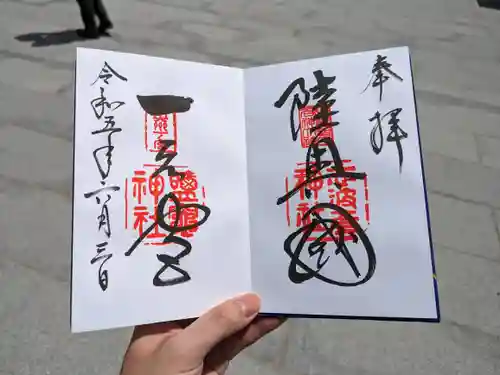 奉拝
陸奥國
志波彦神社
一之宮
鹽竈神社
令和五年六月三日